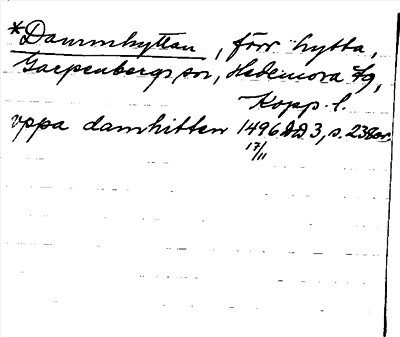 *Dammhyttan, förr hytta,
Garpenbergs sn, Hedemora tg,
Kopp. l.
uppa damhitten 1496 DD 3, s. 238 or.
17/11